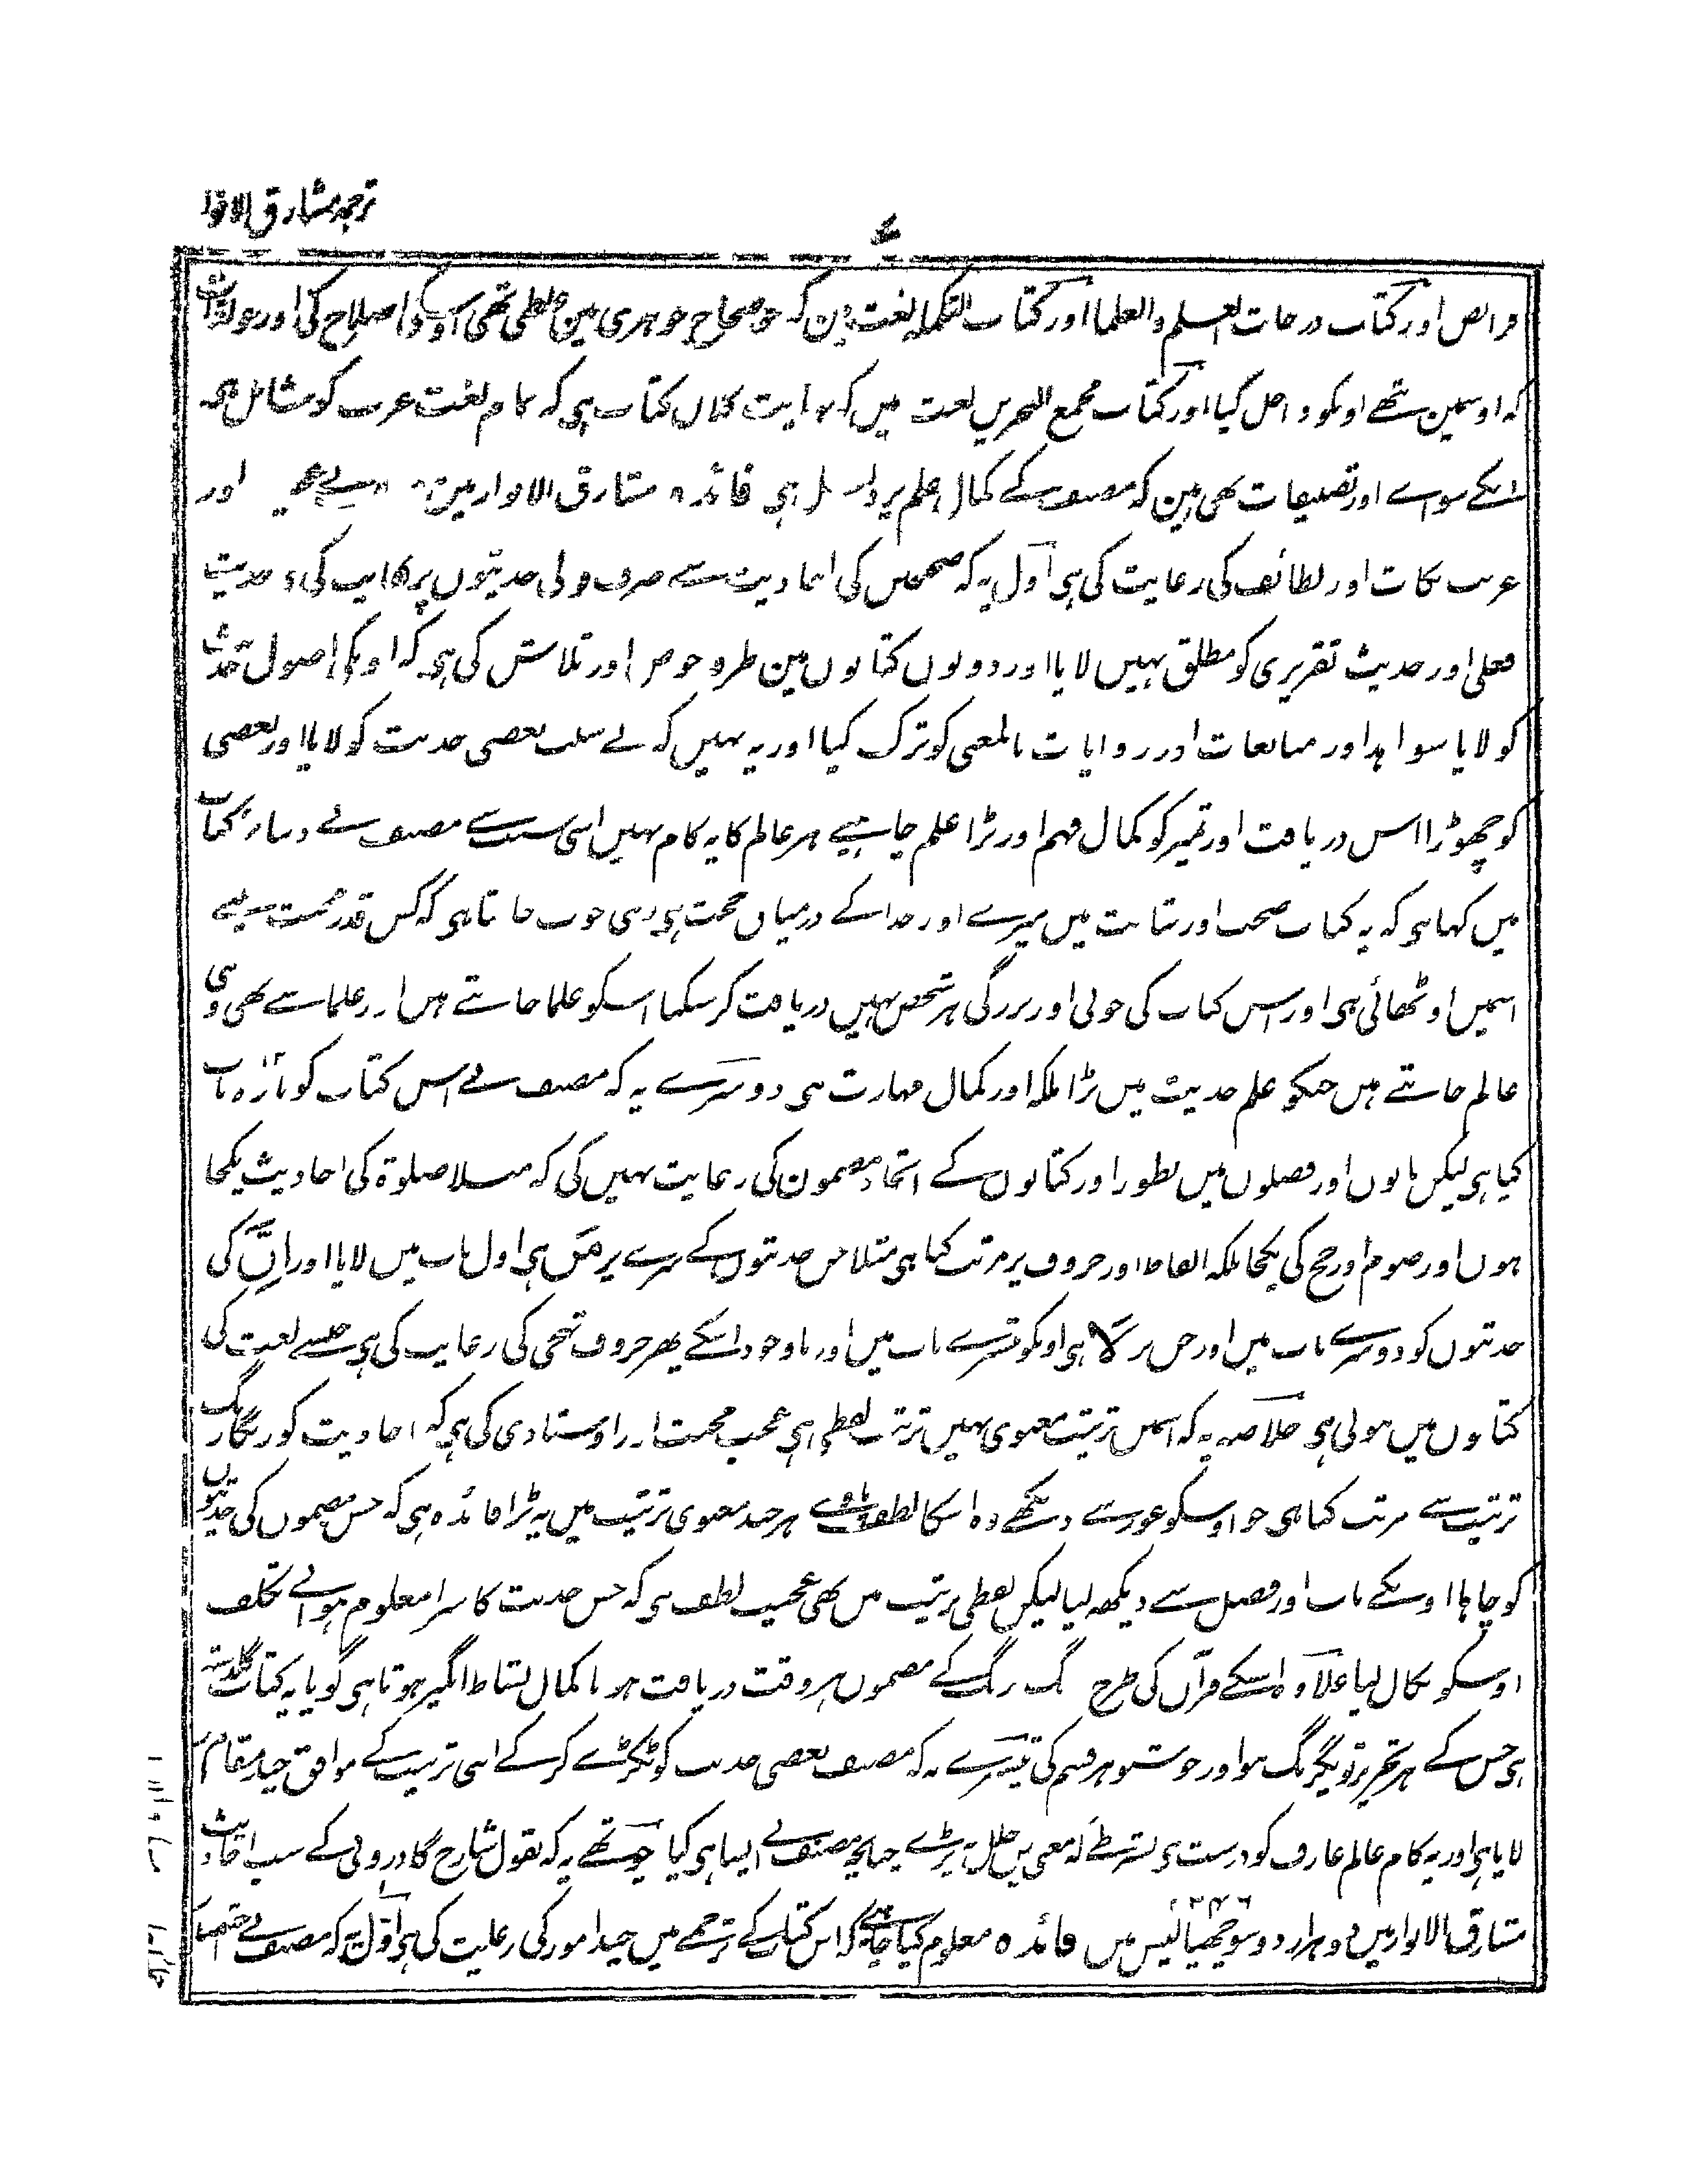 ترجمہ مشارق الانوا
فرائض اور کتاب درجات العلم والعلما اور کتاب التکملہ لغت مین کہ جو صحاح جوہری مین غلطی تھی اوسکی اصلاح کی اور جو لغات
کہ اوسمین نتھے اونکو داخل کیا اور کتاب مجمع البحرین لغت میں کہ نہایت کلاں کتاب ہی کہ تمام لغت عرب کو شامل ہی
اسکے سواے اور تصنیفات بھی ہین کہ مصنف کے کمال علم پر دال ہی فائدہ مشارق الانوار مین اور
غریب نکات اور لطائف کی رعایت کی ہی اول یہ کہ صحیحین کی احادیث سے صرف قولی حدیثوں پر کفایت کی حدیث
فعلی اور حدیث تقریری کو مطلق نہیں لایا اور دونوں کتابوں مین طرز و حرص اور تلاش کی ہی کہ اونکی اصول حدیث
کو لایا شواہد اور متابعات اور روایات بالمعنی کو ترک کیا اور یہ نہیں کہ بے سبب بعضی حدیث کو لایا اور بعضی
کو چھوڑا اس دریافت اور تمیز کو کمال فہم اور بڑا علم چاہیے ہر عالم کا یہ کام نہیں اسی سبب سے مصنف نے دیباچہ کتاب
میں کہا ہی کہ یہ کتاب صحت اور متانت میں میرے اور خدا کے درمیاں حجت ہی وہی خوب جانتا ہی کہ کس قدر محنت مینے
اسمیں اوٹھائی ہی اور اس کتاب کی خوبی اور بزرگی ہر شخص نہیں دریافت کر سکتا اسکو علما جانتے ہیں اور علما سے بھی وہی
عالم جانتے ہیں جنکو علم حدیث میں بڑا ملکہ اور کمال مہارت ہی دوسرے یہ کہ مصنف نے اس کتاب کو بارہ باب
کیا ہی لیکن بابوں اور فصلوں میں بطور اور کتابوں کے اتحاد مضمون کی رعایت نہیں کی کہ مثلا صلوۃ کی احادیث یکجا
ہوں اور صوم اور حج کی یکجا بلکہ الفاظ اور حروف پر مرتب کیا ہی مثلا جن حدیثوں کے سرے پر مَن ہی اول باب میں لایا اور اِنَّ کی
حدیثوں کو دوسرے باب میں اور جن پر لَا ہی اونکو تیسرے باب میں اور باوجود اسکے پھر حروف تہجی کی رعایت کی ہی جیسے لغت کی
کتابوں میں ہوتی ہی خلاصہ یہ کہ اسمیں ترتیب معنوی نہیں ترتیب لفظی ہی عجب محنت اور اوستادی کی ہی کہ احادیث کو رنگارنگ
ترتیب سے مرتب کیا ہی جو اوسکو غور سے دیکھے وہ اسکا لطف پاوے ہر چند معنوی ترتیب میں یہ بڑا فائدہ ہی کہ جس مضموں کی حدیثوں
کو چاہا اوسکے باب اور فصل سے دیکھ لیا لیکن لفظی ترتیب میں بھی عجیب لطف ہی کہ جس حدیث کا سرا معلوم ہو بے تکلف
اوسکو نکال لیا علاوہ اسکے قرآں کی طرح رنگ رنگ کے مضموں ہر وقت دریافت ہونا کمال نشاط انگیز ہوتا ہی گویا یہ کتاب گلدستہ
ہی جس کے ہر تختہ پر نیرنگ ہو اور خوشبو ہر قسم کی تیسرے یہ کہ مصنف بعضی حدیث کو ٹکڑے کر کے اسی ترتیب کے موافق چند مقام میں
لایا ہی اور یہ کام عالم عارف کو درست ہی بشرطے کہ معنی میں خلل نہ پڑے چنانچہ مصنف نے ایسا ہی کیا چوتھے یہ کہ بقول شارح گاذرونی کے سب احادیث
مشارق الانوار میں دو ہزار دو سو چھیالیس ہیں فائدہ معلوم کیا چاہیے کہ اس کتاب کے ترجمے میں چند امور کی رعایت کی ہی اول یہ کہ مصنف نے اختصار